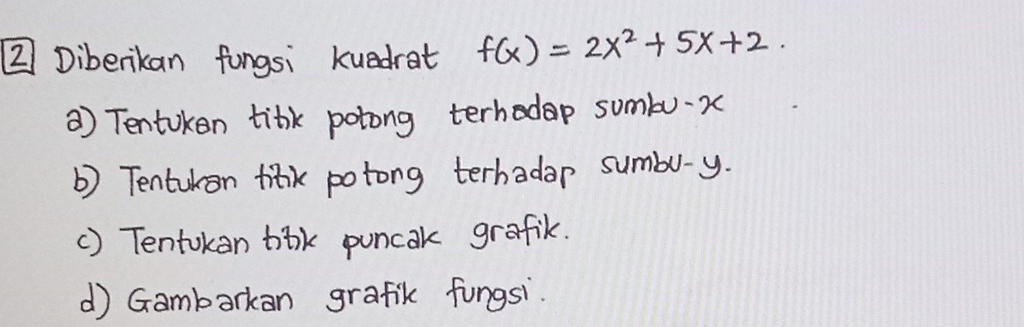 2 Diberikan fungsi kuadrat f(x) = 2x² + 5x + 2.
a) Tentukan titik potong terhadap sumbu-x
b) Tentukan titik potong terhadap sumbu-y.
c) Tentukan titik puncak grafik.
d) Gambarkan grafik fungsi.